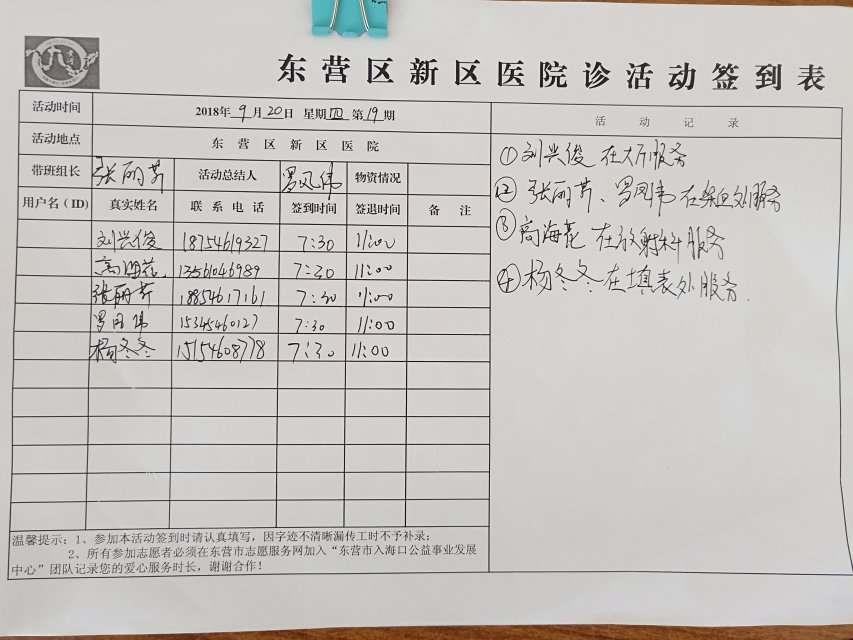 东营区新区医院诊活动签到表
活动时间 2018年9月20日 星期四 第19期
活动地点 东营区新区医院
带班组长 张丽芹 活动总结人 罗凤伟 物资情况
用户名(ID) 真实姓名 联系电话 签到时间 签退时间 备注
刘兴俊 18754619327 7:30 11:00
高海花 13561046989 7:30 11:00
张丽芹 18854617161 7:30 11:00
罗凤伟 15345460127 7:30 11:00
杨冬冬 15154608778 7:30 11:00
温馨提示：1、参加本活动签到时请认真填写，因字迹不清晰漏传工时不予补录；
2、所有参加志愿者必须在东营市志愿服务网加入“东营市入海口公益事业发展
中心”团队记录您的爱心服务时长，谢谢合作！
活动记录
①刘兴俊在大厅服务
②张丽芹、罗凤伟在采血处服务
③高海花在放射科服务
④杨冬冬在填表处服务.